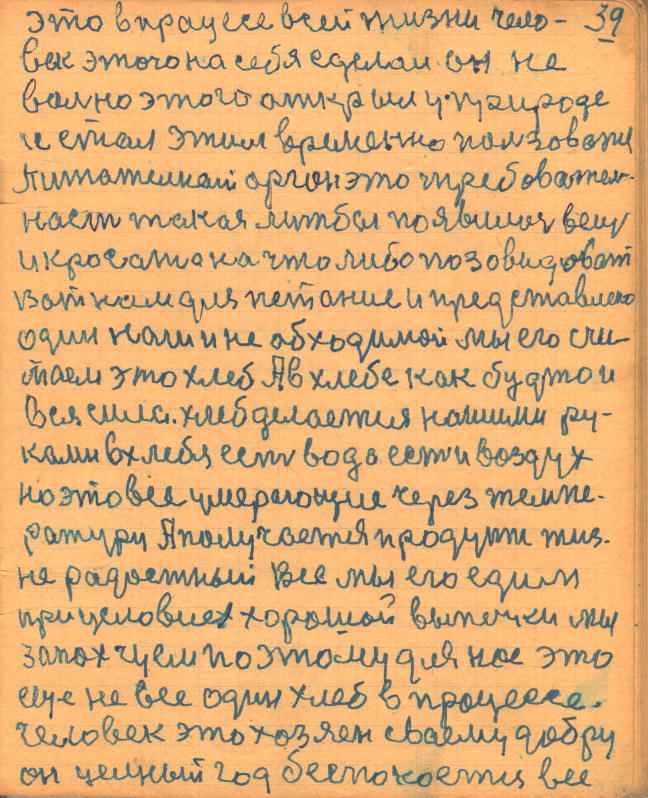 это впрацесе всей жизни чело- 39
век этого на себя сделал он не
волно этого открыл у природе
и стал этим временно ползоватся
питателнай арган это требовател-
наст такая литбы появилися вещ
икросота на что либо позовидоват
вот нам для петание и представлено
один наш и не обходимой мы его счи-
таем это хлеб Ав хлебе как будто и
вся сила. хлеб делается нашими ру-
ками в хлебя есть вода ести воздух
но это все умерающие через темпе-
ратуру Аполучается продукт жиз-
не радостный Все мы его едим
при условиех хорошой выпечки мы
запох чуем по этому для нас это
еще не все один хлеб в процессе.
Человек это хозяен своему добру
он целный год беспокоется все